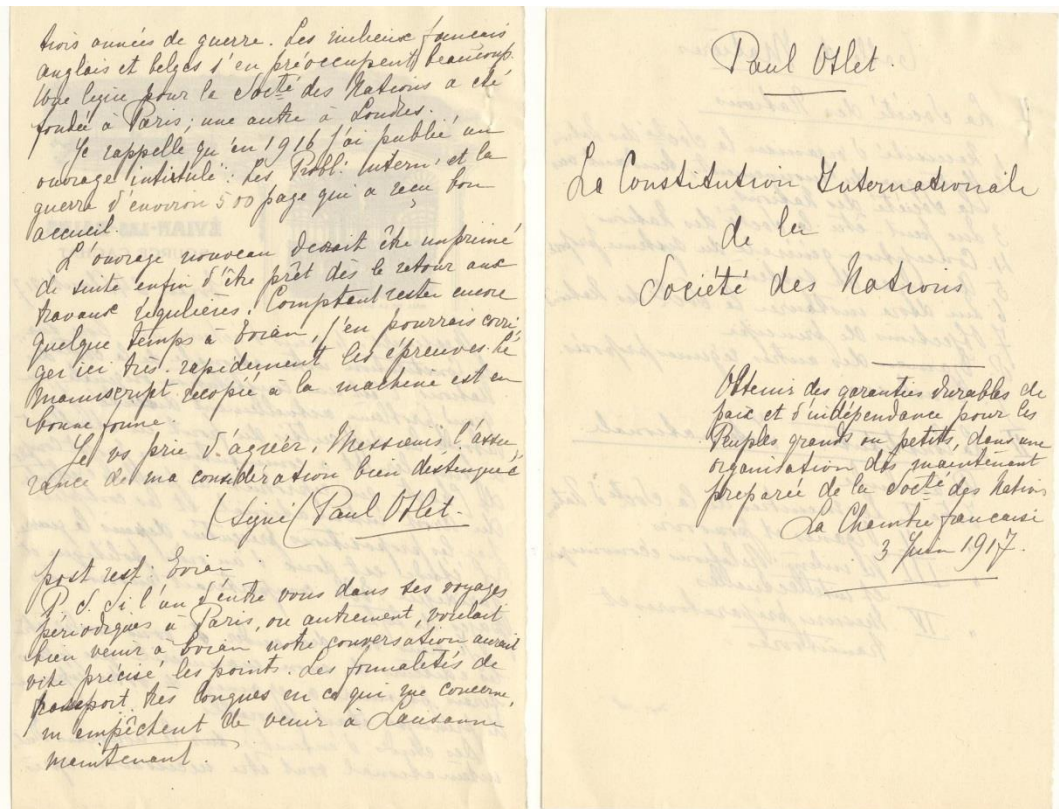 trois années de guerre. Les milieux français
anglais et belges s'en préoccupent beaucoup.
Une ligue pour la Socté des Nations a été
fondée à Paris; une autre à Londres.
Je rappelle qu'en 1916 j'ai publié un
ouvrage intistulé: Les Probl: intern: et la
guerre d'environ 500 page qui a reçu bon
accueil.
L'ouvrage nouveau devrait être imprimé
de suite enfin d'être prêt dès le retour aux
travaux régulières. Comptant rester encore
quelque temps à Evian, j'en pourrais corri-
ger ici très rapidement les épreuves. Le
manuscript recopié à la machine est en
bonne forme.
Je vs prie d'agréer, Messieurs l'assu-
rance de ma considération bien distinguée
(Signé) Paul Otlet.
post rest: Evian
P. S. Si l'un d'entre vous dans ses voyages
périodiques à Paris, ou autrement, voulait
bien venir à Evian notre conversation aurait
vite précisé les points. Les formalités de
transport très longues en ce qui me concerne,
m'empêchent de venir à Lausanne
maintenant.
Paul Otlet.
La Constitution Internationale
de la
Société des Nations
Obtenir des garanties durables de
paix et d'indépendance pour les
Peuples grands ou petits, dans une
organisation dès maintenant
preparée de la Socté des Nations
La Chambre française
3 Juin 1917.